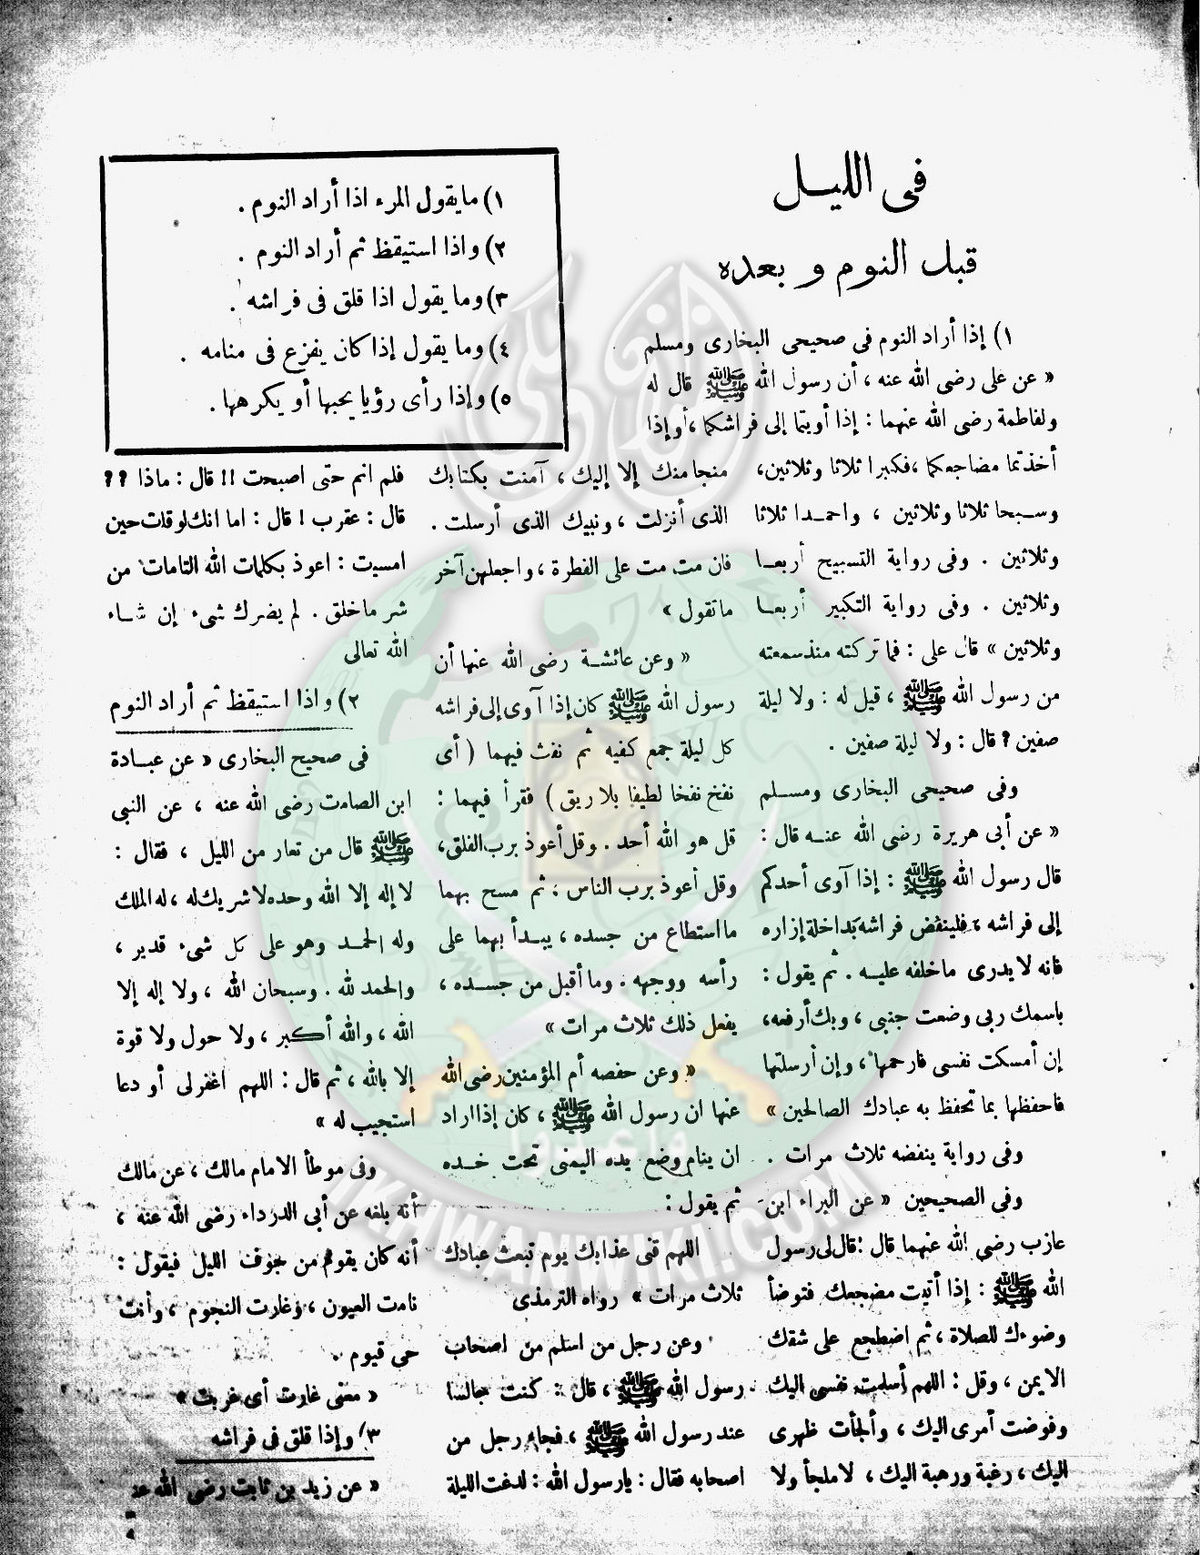 فى الليل
قبل النوم وبعده
١) مايقول المرء اذا أراد النوم .
٢) واذا استيقظ ثم أراد النوم .
٣) وما يقول اذا قلق فى فراشه .
٤) وما يقول إذا كان يفزع فى منامه .
٥) وإذا رأى رؤيا يحبها أو يكرهها .
١) إذا أراد النوم فى صحيحى البخارى ومسلم
« عن على رضى الله عنه ، أن رسول الله ﷺ قال له
ولفاطمة رضى الله عنهما : إذا أويتما إلى فراشكما ، أو إذا
أخذتما مضاجعكما ، فكبرا ثلاثا وثلاثين ،
وسبحا ثلاثا وثلاثين ، واحمدا ثلاثا
وثلاثين . وفى رواية التسبيح أربعا
وثلاثين . وفى رواية التكبير أربعا
وثلاثين » قال على : فما تركته منذ سمعته
من رسول الله ﷺ ، قيل له : ولا ليلة
صفين ؟ قال : ولا ليلة صفين .
وفى صحيحى البخارى ومسلم
« عن أبى هريرة رضى الله عنه قال :
قال رسول الله ﷺ : إذا آوى أحدكم
إلى فراشه ، فلينفض فراشه بداخلة إزاره
فانه لا يدرى ماخلفه عليه . ثم يقول :
باسمك ربى وضعت جنبى ، وبك أرفعه ،
إن أمسكت نفسى فارحمها ، وإن أرسلتها
فاحفظها بما تحفظ به عبادك الصالحين »
وفى رواية ينفضه ثلاث مرات .
وفى الصحيحين « عن البراء ابن
عازب رضى الله عنهما قال : قال لى رسول
الله ﷺ : إذا أتيت مضجعك فتوضأ
وضوءك للصلاة ، ثم اضطجع على شقك
الايمن ، وقل : اللهم أسلمت نفسى اليك
وفوضت أمرى اليك ، وألجأت ظهرى
اليك ، رغبة ورهبة اليك ، لاملجأ ولا
منجا منك إلا إليك ، آمنت بكتابك
الذى أنزلت ، ونبيك الذى أرسلت .
فان مت مت على الفطرة ، واجعلهن آخر
ماتقول »
« وعن عائشة رضى الله عنها أن
رسول الله ﷺ كان إذا آوى إلى فراشه
كل ليلة جمع كفيه ثم نفث فيهما ( أى
نفخ نفخا لطيفا بلا ريق ) فقرأ فيهما :
قل هو الله أحد . وقل أعوذ برب الفلق ،
وقل أعوذ برب الناس ؛ ثم مسح بهما
ما استطاع من جسده ، يبدأ بهما على
رأسه ووجهه . وما أقبل من جسده ،
يفعل ذلك ثلاث مرات »
« وعن حفصه أم المؤمنين رضى الله
عنها ان رسول الله ﷺ ، كان إذا اراد
ان ينام وضع يده اليمنى تحت خده
ثم يقول :
اللهم قنى عذابك يوم تبعث عبادك
ثلاث مرات » رواه الترمذى
وعن رجل من اسلم من اصحاب
رسول الله ﷺ ، قال : كنت جالسا
عند رسول الله ﷺ ، فجاء رجل من
اصحابه فقال : يارسول الله : لدغت الليلة
فلم انم حتى اصبحت !! قال : ماذا ؟؟
قال : عقرب ! قال : اما انك لوقلت حين
امسيت : اعوذ بكلمات الله التامات من
شر ماخلق . لم يضرك شىء إن شاء
الله تعالى
٢) واذا استيقظ ثم أراد النوم
فى صحيح البخارى « عن عبادة
ابن الصامت رضى الله عنه ، عن النبى
ﷺ قال من تعار من الليل ، فقال :
لا إله إلا الله وحده لا شريك له ، له الملك
وله الحمد وهو على كل شىء قدير ،
والحمد لله . وسبحان الله ، ولا إله إلا
الله ، والله أكبر ، ولا حول ولا قوة
إلا بالله ، ثم قال : اللهم اغفر لى أو دعا
استجيب له »
وفى موطأ الامام مالك ، عن مالك
أنه بلغه عن أبى الدرداء رضى الله عنه ،
أنه كان يقوم من جوف الليل فيقول :
نامت العيون ، وغارت النجوم ، وأنت
حى قيوم .
« معنى غارت أى غربت »
٣) وإذا قلق فى فراشه
« عن زيد بن ثابت رضى الله عنه
وأعدوا
IKHWANWIKI.COM